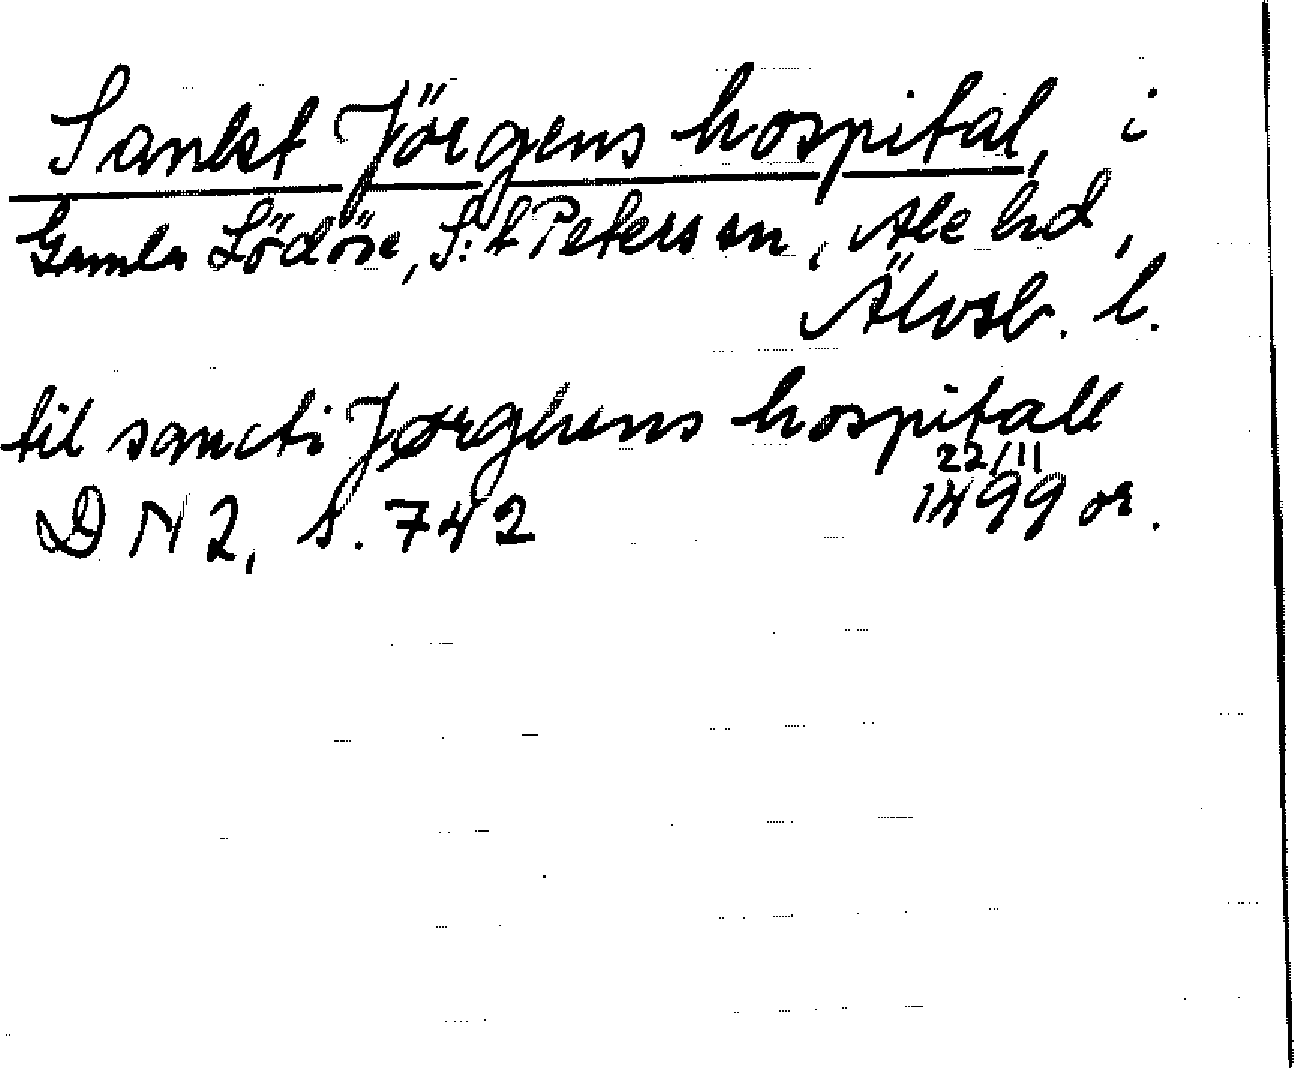 Sankt Jörgens hospital, i
Gamla Lödöse, S:t Peters sn, Ale hd,
Älvsb. l.
til sancti Jørghens hospitall
22/11
D N 2, s. 742 1499 or.